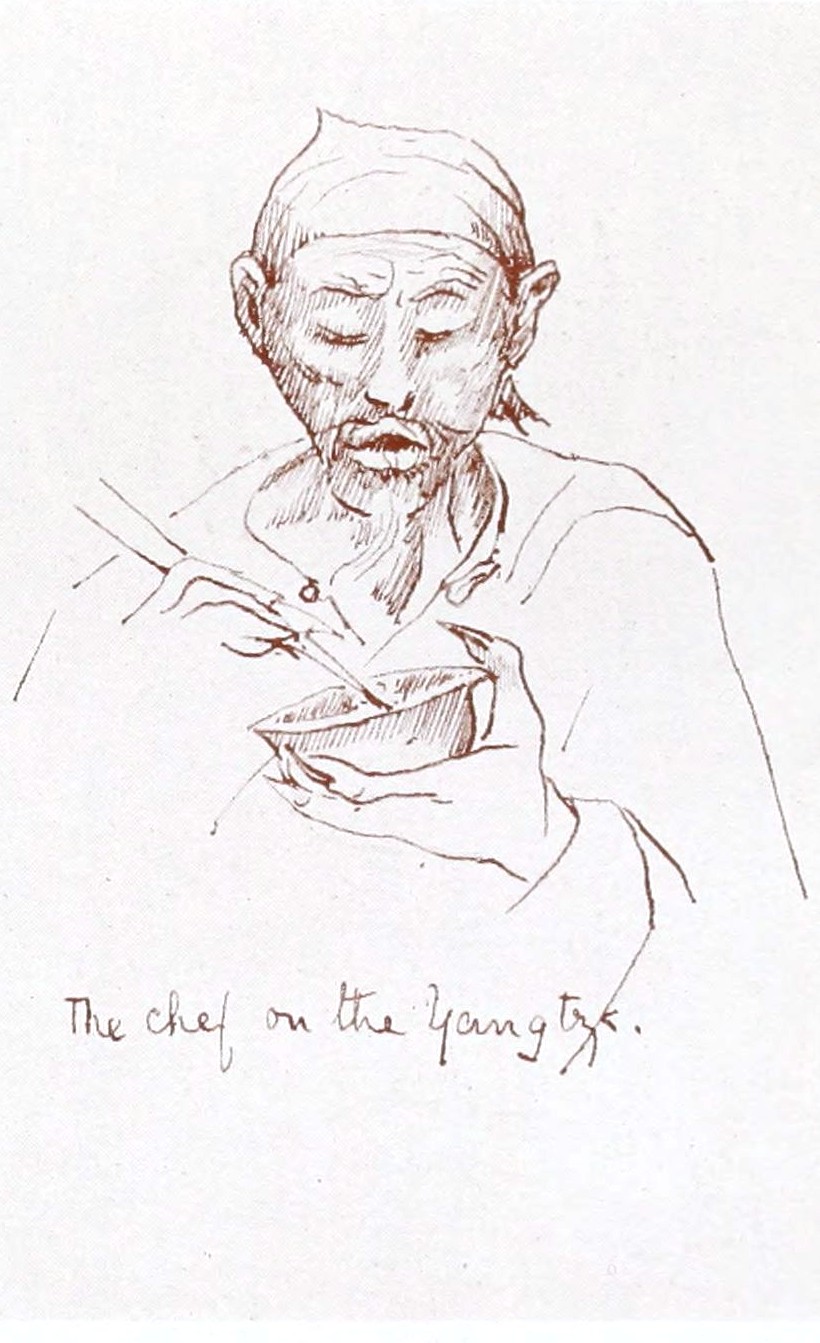 The chef on the Yangtze.